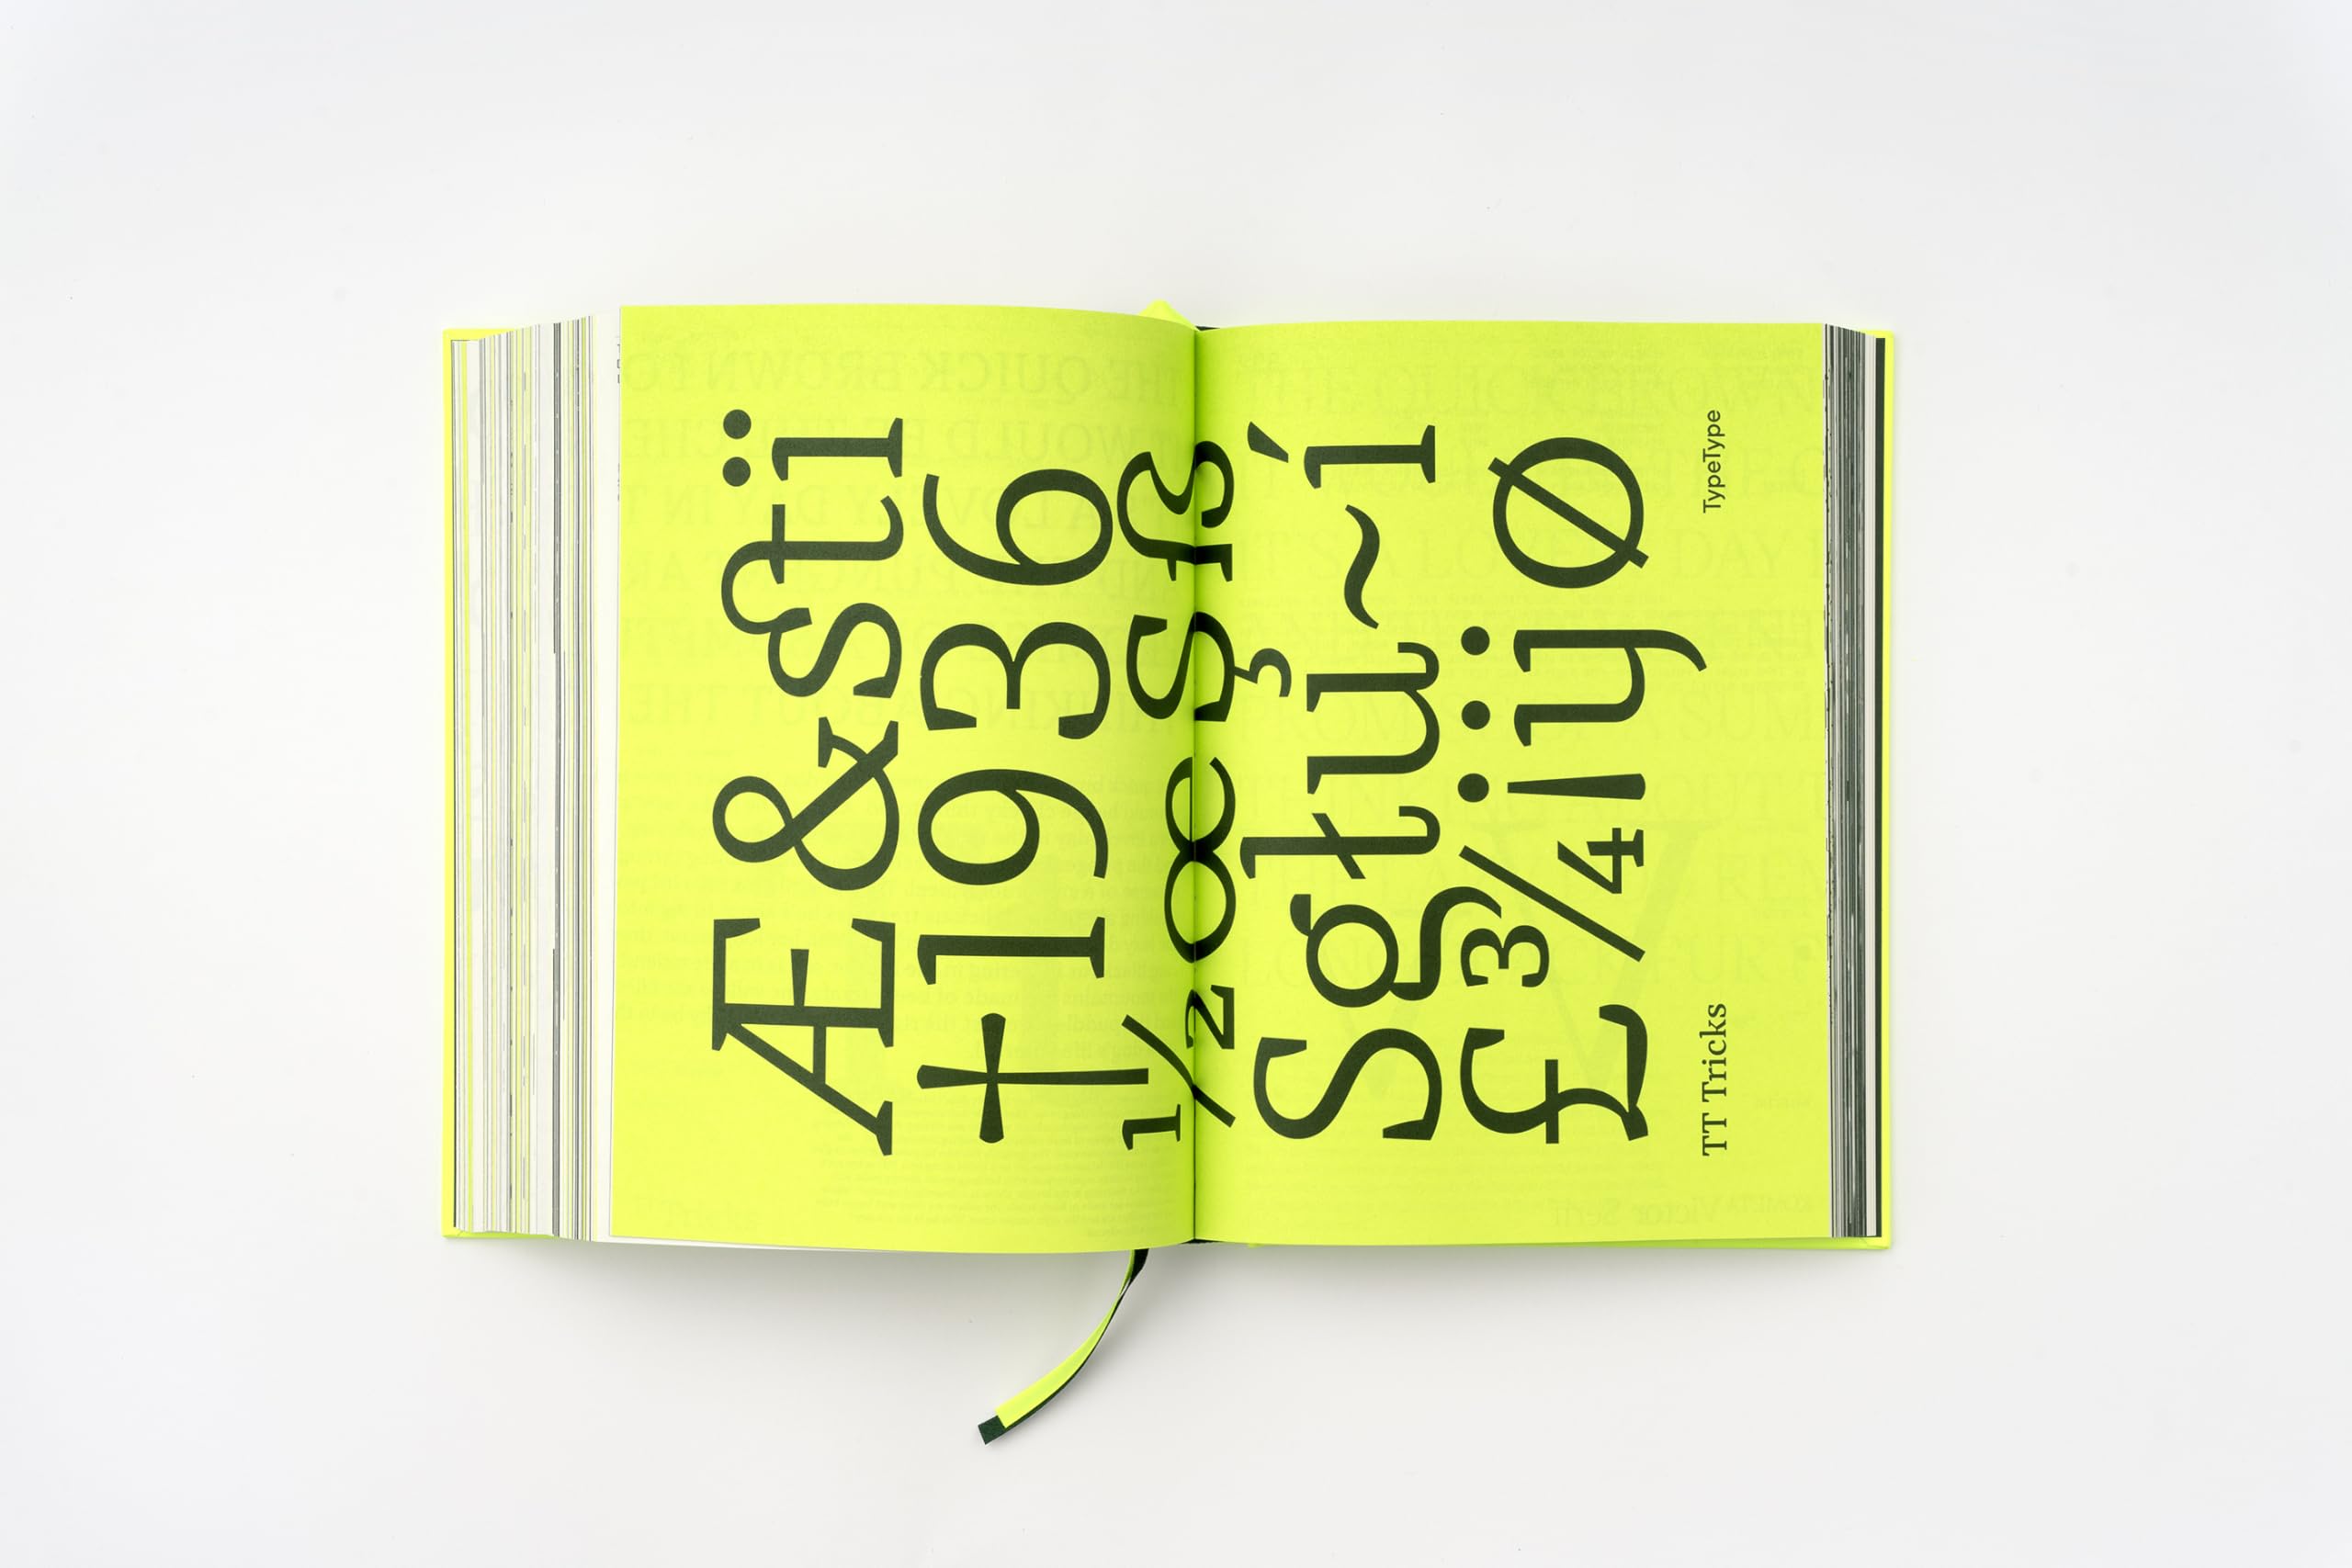 Æ&stï
†1936
½œŞß
Sgtu~í
£¾¡ÿø
TT Tricks TypeType